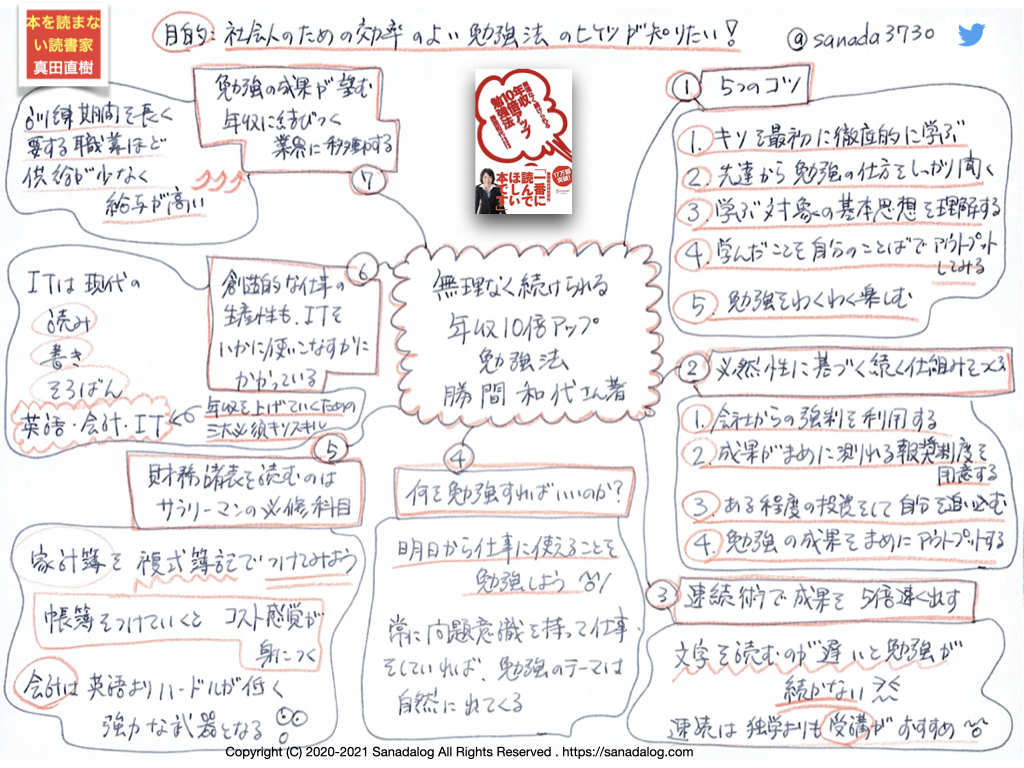 本を読まな
い読書家
真田直樹
目的：社会人のための効率のよい勉強法のヒケツが知りたい！
@sanada3730
無理なく続けられる
年収10倍アップ
勉強法
勝間和代さん著
無理なく続けられる
年収
10倍アップ
勉強法
17万部
突破!
「一番に
読んで
ほしい
本です」
① 5つのコツ
1. キソを最初に徹底的に学ぶ
2. 先達から勉強の仕方をしっかり聞く
3. 学ぶ対象の基本思想を理解する
4. 学んだことを自分のことばでアウトプット
してみる
5. 勉強をわくわく楽しむ
② 必然性に基づく続く仕組みをつくる
1. 会社からの強制を利用する
2. 成果がまめに測れる報奨制度を
用意する
3. ある程度の投資をして自分を追い込む
4. 勉強の成果をまめにアウトプットする
③ 速読術で成果を5倍速く出す
文字を読むのが遅いと勉強が
続かない
速読は独学よりも受講がおすすめ
④
何を勉強すればいいのか？
明日から仕事に使えることを
勉強しよう
常に問題意識を持って仕事
をしていれば、勉強のテーマは
自然に出てくる
⑤
財務諸表を読むのは
サラリーマンの必修科目
家計簿を複式簿記でつけてみよう
帳簿をつけていくとコスト感覚が
身につく
会計は英語よりハードルが低く
強力な武器となる
⑥
創造的な仕事の
生産性も、ITを
いかに使いこなすかに
かかっている
ITは現代の
読み
書き
そろばん
英語・会計・IT
年収を上げていくための
三大必須キソスキル
⑦
勉強の成果が望む
年収に結びつく
業界に移動する
訓練期間を長く
要する職業ほど
供給が少なく
給与が高い
Copyright (C) 2020-2021 Sanadalog All Rights Reserved . https://sanadalog.com